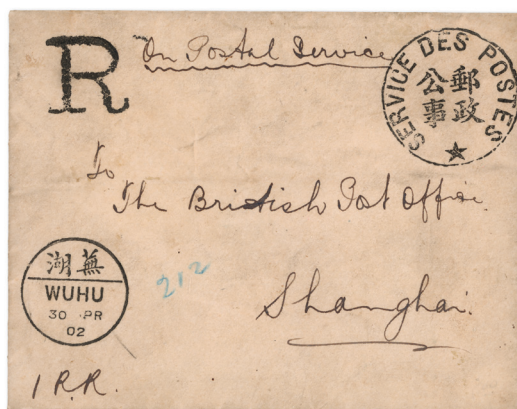 R
On Postal Service
SERVICE DES POSTES
郵政
公事
To
The British Post Office.
湖蕪
WUHU
30 PR
02
212
Shanghai.
1 R.R.